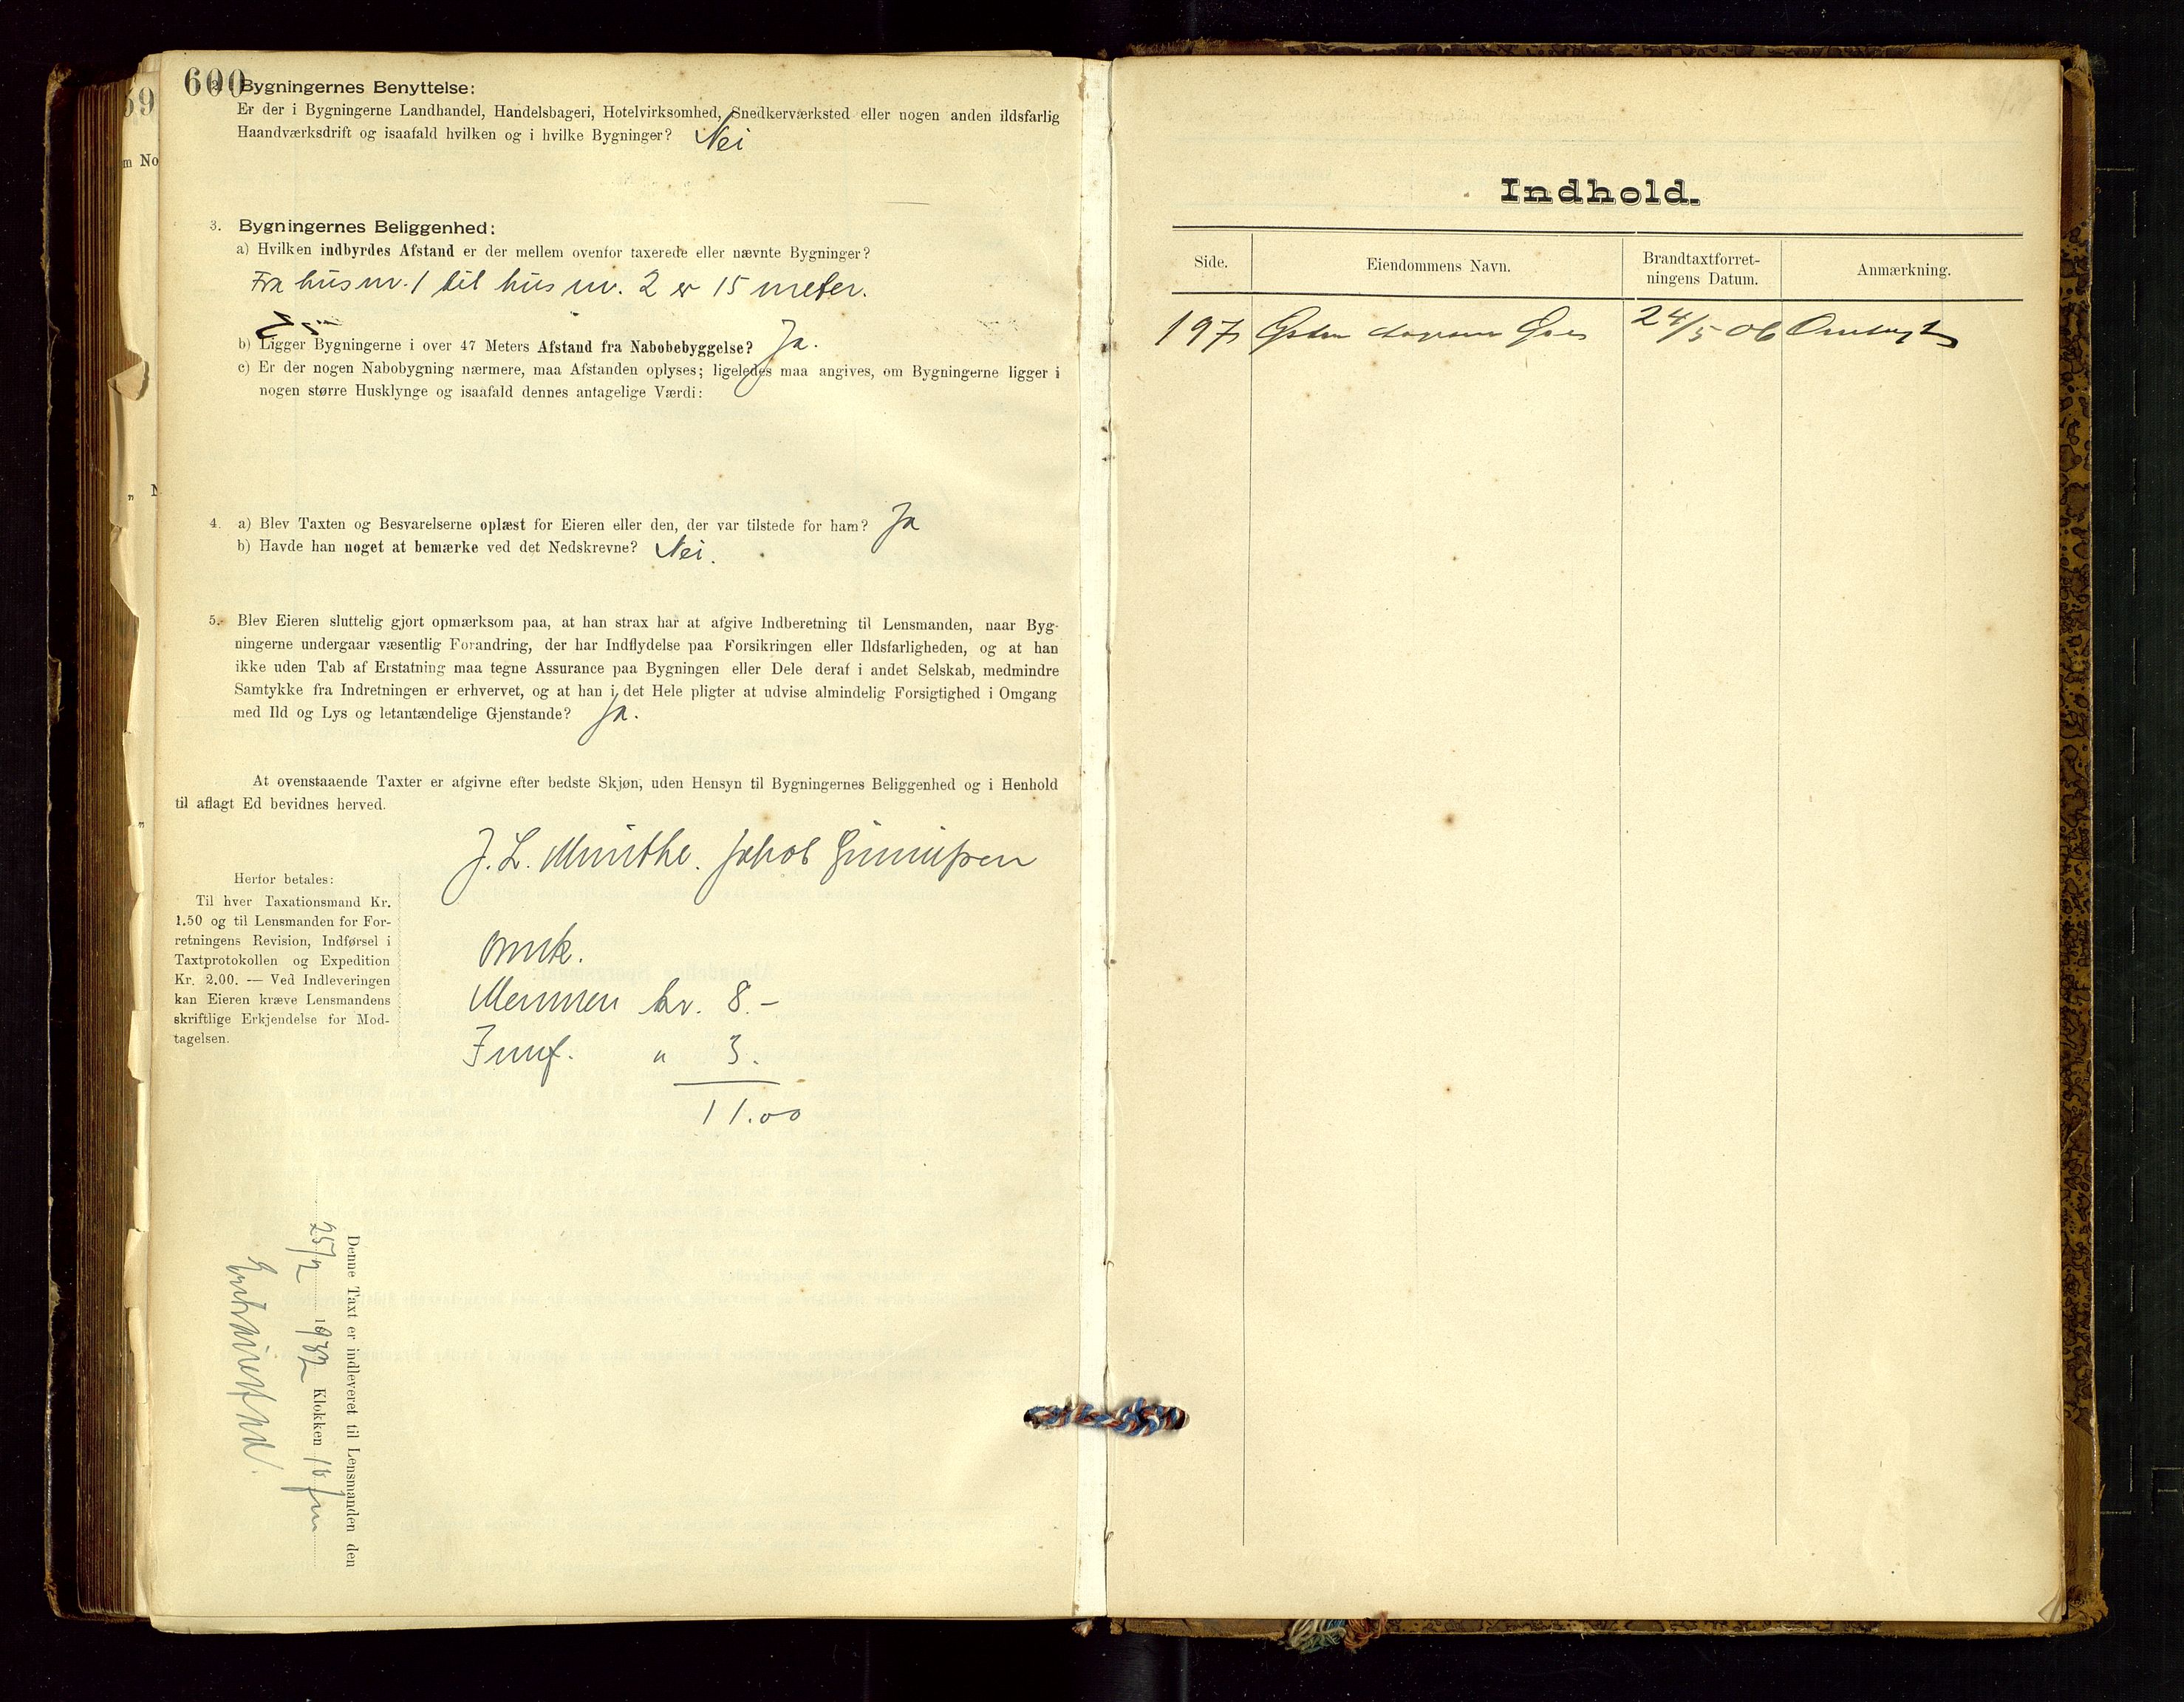 600
2. Bygningernes Benyttelse:
Er der i Bygningerne Landhandel, Handelsbageri, Hotelvirksomhed, Snedkerværksted eller nogen anden ildsfarlig
Haandværksdrift og isaafald hvilken og i hvilke Bygninger? Nei
3. Bygningernes Beliggenhed:
a) Hvilken indbyrdes Afstand er der mellem ovenfor taxerede eller nævnte Bygninger?
Fra hus nr. 1 til hus nr. 2 er 15 meter.
b) Ligger Bygningerne i over 47 Meters Afstand fra Nabobebyggelse? Ja.
c) Er der nogen Nabobygning nærmere, maa Afstanden oplyses; ligeledes maa angives, om Bygningerne ligger i
nogen større Husklynge og isaafald dennes antagelige Værdi:
4. a) Blev Taxten og Besvarelserne oplæst for Eieren eller den, der var tilstede for ham? Ja
b) Havde han noget at bemærke ved det Nedskrevne? Nei.
5. Blev Eieren sluttelig gjort opmærksom paa, at han strax har at afgive Indberetning til Lensmanden, naar Byg-
ningerne undergaar væsentlig Forandring, der har Indflydelse paa Forsikringen eller Ildsfarligheden, og at han
ikke uden Tab af Erstatning maa tegne Assurance paa Bygningen eller Dele deraf i andet Selskab, medmindre
Samtykke fra Indretningen er erhvervet, og at han i det Hele pligter at udvise almindelig Forsigtighed i Omgang
med Ild og Lys og letantændelige Gjenstande? Ja.
At ovenstaaende Taxter er afgivne efter bedste Skjøn, uden Hensyn til Bygningernes Beliggenhed og i Henhold
til aflagt Ed bevidnes herved.
J. L. Munthe. Jakob
Herfor betales:
Til hver Taxationsmand Kr.
1.50 og til Lensmanden for For-
retningens Revision, Indførsel i
Taxtprotokollen og Expedition
Kr. 2.00. — Ved Indleveringen
kan Eieren kræve Lensmandens
skriftlige Erkjendelse for Mod-
tagelsen.
Omk.
Mennen kr. 8.-
" 3.
11.00
Denne Taxt er indleveret til Lensmanden den
25/2 1932 Klokken
Indhold.
Side.
Eiendommens Navn.
Brandtaxtforret-
ningens Datum.
Anmærkning.
197 24/5 06 Omtaxt